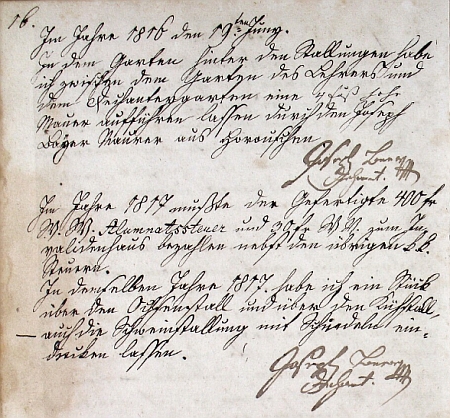 16.
Im Jahre 1816 den 19ten Juny.
in dem Garten hinter den Stallungen habe
ich zwischen dem Garten des Lehrers und
dem Dechantengarten eine 7 fuß hohe
Mauer aufführen lassen durch den Joseph
Bayer Maurer aus
Joseph
Dechant.
Im Jahre 1817 mußte der Gefertigte 400 fr
W. W. Alumnatssteuer und 30 fr W. W. zum In-
validenhaus bezahlen nebst den übrigen k. k.
Steuern.
In demselben Jahre 1817. habe ich ein Stück
über den Ochsenstall und über den Kühstall,
auch die Schweinstallung mit Schindeln ein-
decken lassen.
Joseph
Dechant.